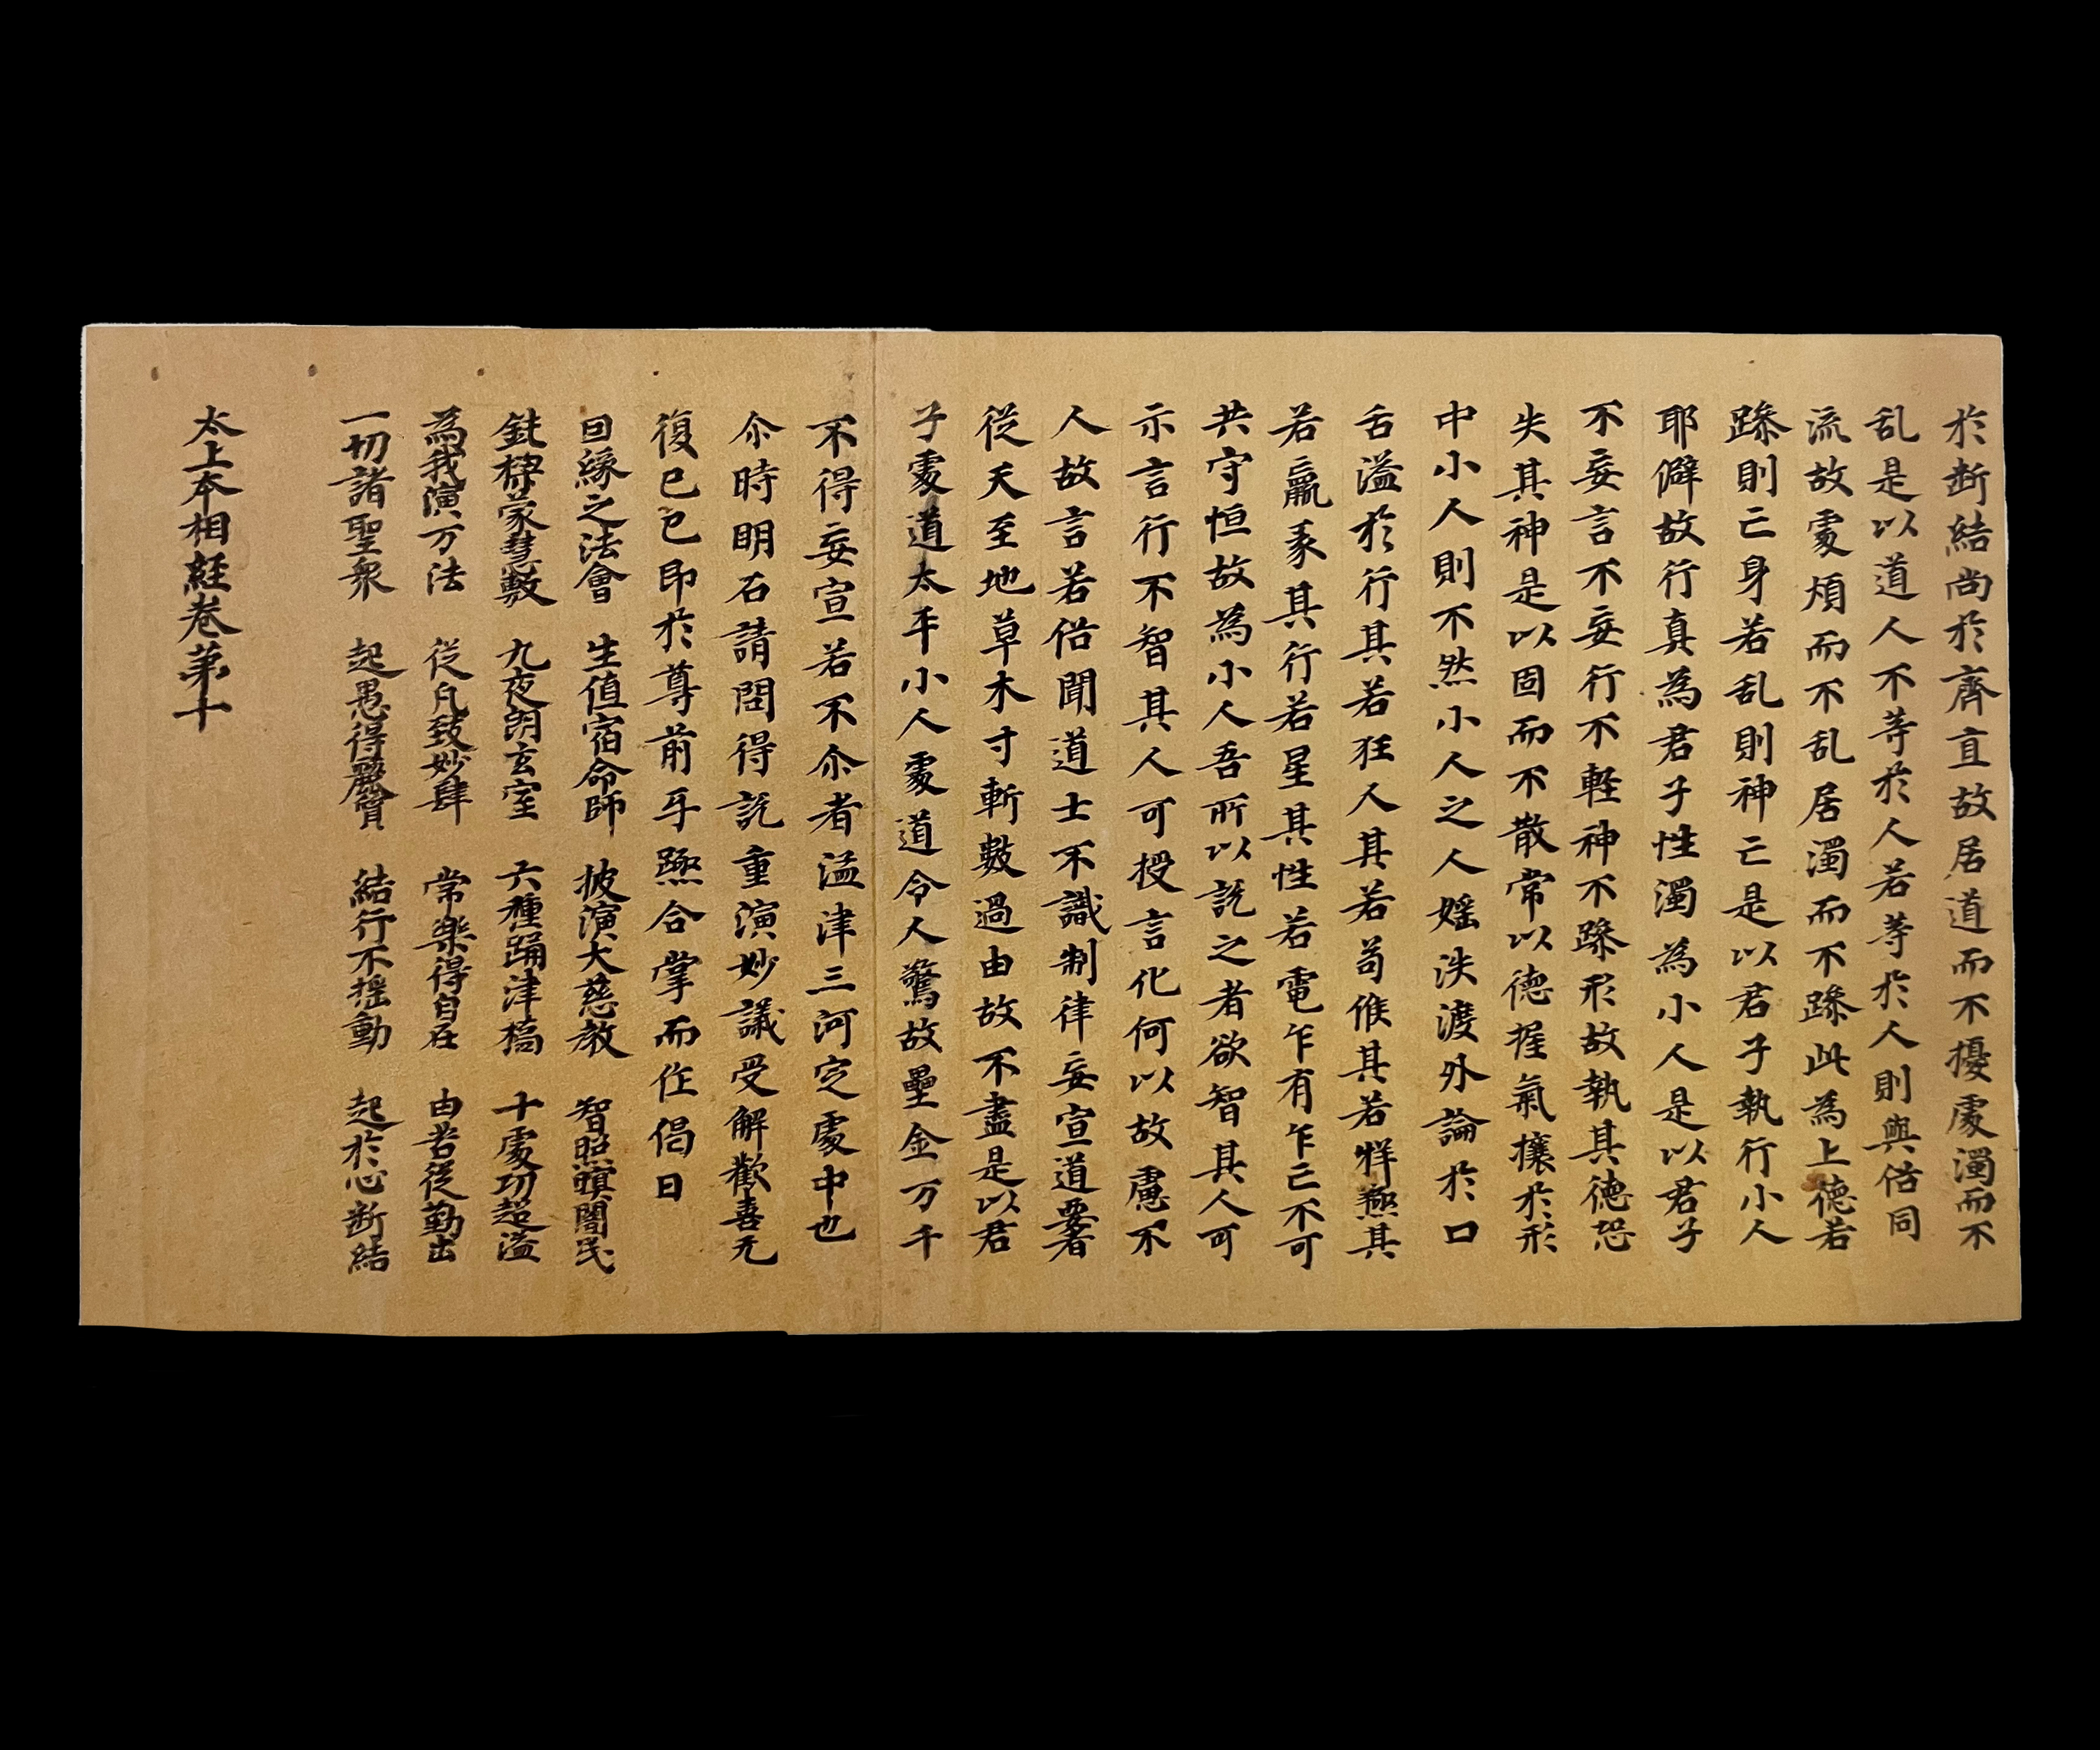 於断結尚於齊直故居道而不擾處濁而不
乱是以道人不等於人若等於人則與俗同
流故處煩而不乱居濁而不躁此為上德若
躁則亡身若乱則神亡是以君子執行小人
耶僻故行真為君子性濁為小人是以君子
不妄言不妄行不輕神不躁形故執其德恐
失其神是以固而不散常以德握氣攘於形
中小人則不然小人之人婬泆渡外論於口
舌溢於行其若狂人其若苟倠其若牂㸐其
若羸豕其行若星其性若電乍有乍亡不可
共守恒故為小人吾所以說之者欲智其人可
示言行不智其人可授言化何以故慮不
人故言若俗聞道士不識制律妄宣道要者
從天至地草木寸斬數過由故不盡是以君
子處道太平小人處道令人驚故壘金万千
不得妄宣若不尒者溢津三河定處中也
尒時明石請問得說重演妙議受解歡喜无
復已已即於尊前㸦跪合掌而作偈曰
因緣之法會 生值宿命師 披演大慈教 智照瞑闇民
鈍㮈蒙慧數 九夜朗玄室 六種踊津槗 十處功超溢
為我演万法 從凡致妙肆 常樂得自在 由若從勤出
一切諸聖衆 起愚得麗質 結行不搖動 起於心断結
太上本相經卷第十